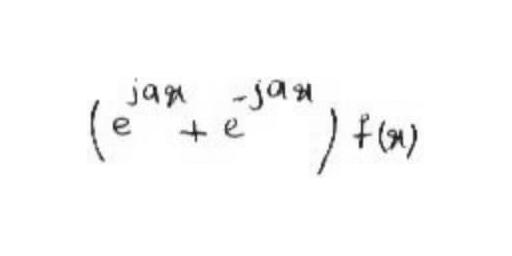 (e^{jax} + e^{-jax}) f(x)